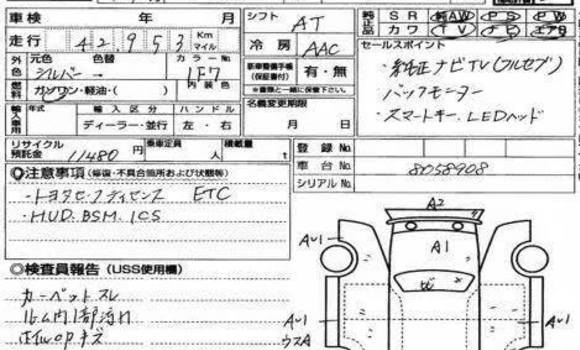 車検 年 月 シフト AT 純正品 SR 純AW PS PW
走行 42,953 Km マイル 冷房 AAC カワ TV ナビ エアB
外色 元色 色替 カラーNo セールスポイント
シルバー → 1F7 新車整備手帳(保証書付) 有・無 ・純正ナビTV(フルセグ)
燃料 ガソリン・軽油・( ) 内装色 ※書類と一緒に保管して下さい。 ・バックモニター
輸入車用 年式 輸入区分 ハンドル 名義変更期限 ・スマートキー、LEDヘッド
ディーラー・並行 左・右 月 日
リサイクル預託金 11480 円 乗車定員 人 積載量 t 登録No
車台No 8058908
シリアルNo
◎注意事項(修復・不具合箇所および状態等)
・トヨタセーフティセンス ETC
・HUD.BSM.ICS
◎検査員報告(USS使用欄)
カーペットスレ
ルーム内1部汚れ
ホイルOPキズ
A2
AU1 A1 AU1
ヒ
AU1 AU1
ウスA